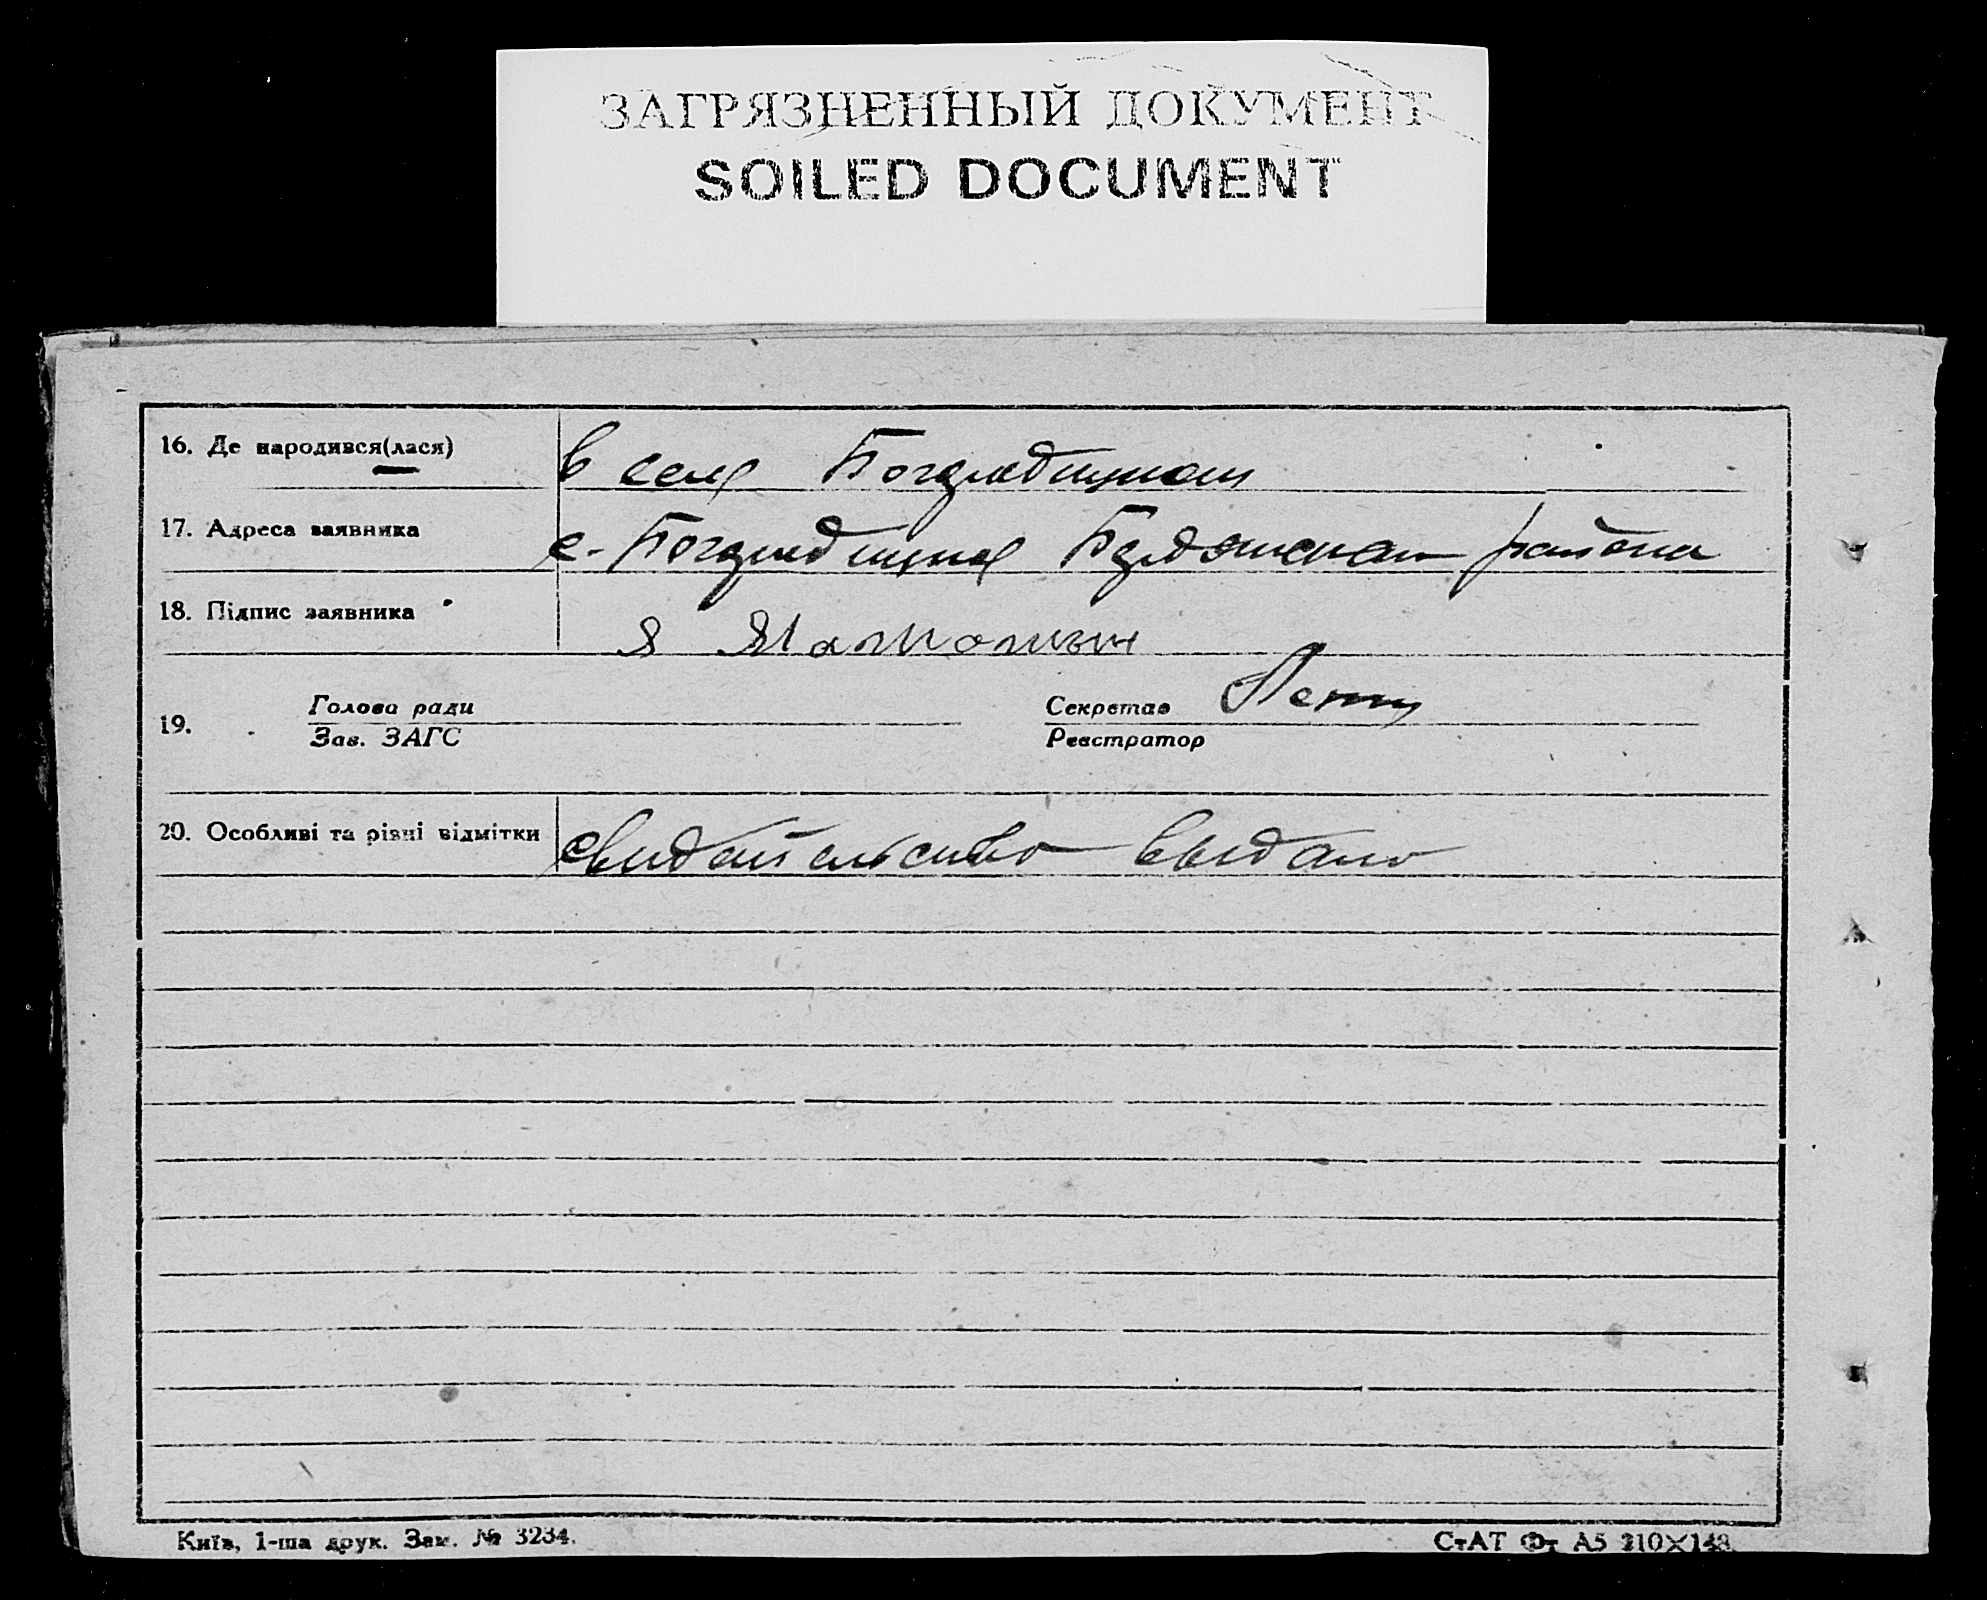 ЗАГРЯЗНЕННЫЙ ДОКУМЕНТ
SOILED DOCUMENT
16. Де народився(лася) в селе
17. Адреса заявника с. района
18. Підпис заявника я
19. Голова ради Секретар
Зав. ЗАГС Реєстратор
20. Особливі та різні відмітки свидетельство выдано
Київ, 1-ша друк. Зам. № 3234. СтАТ Фт А5 210×148.